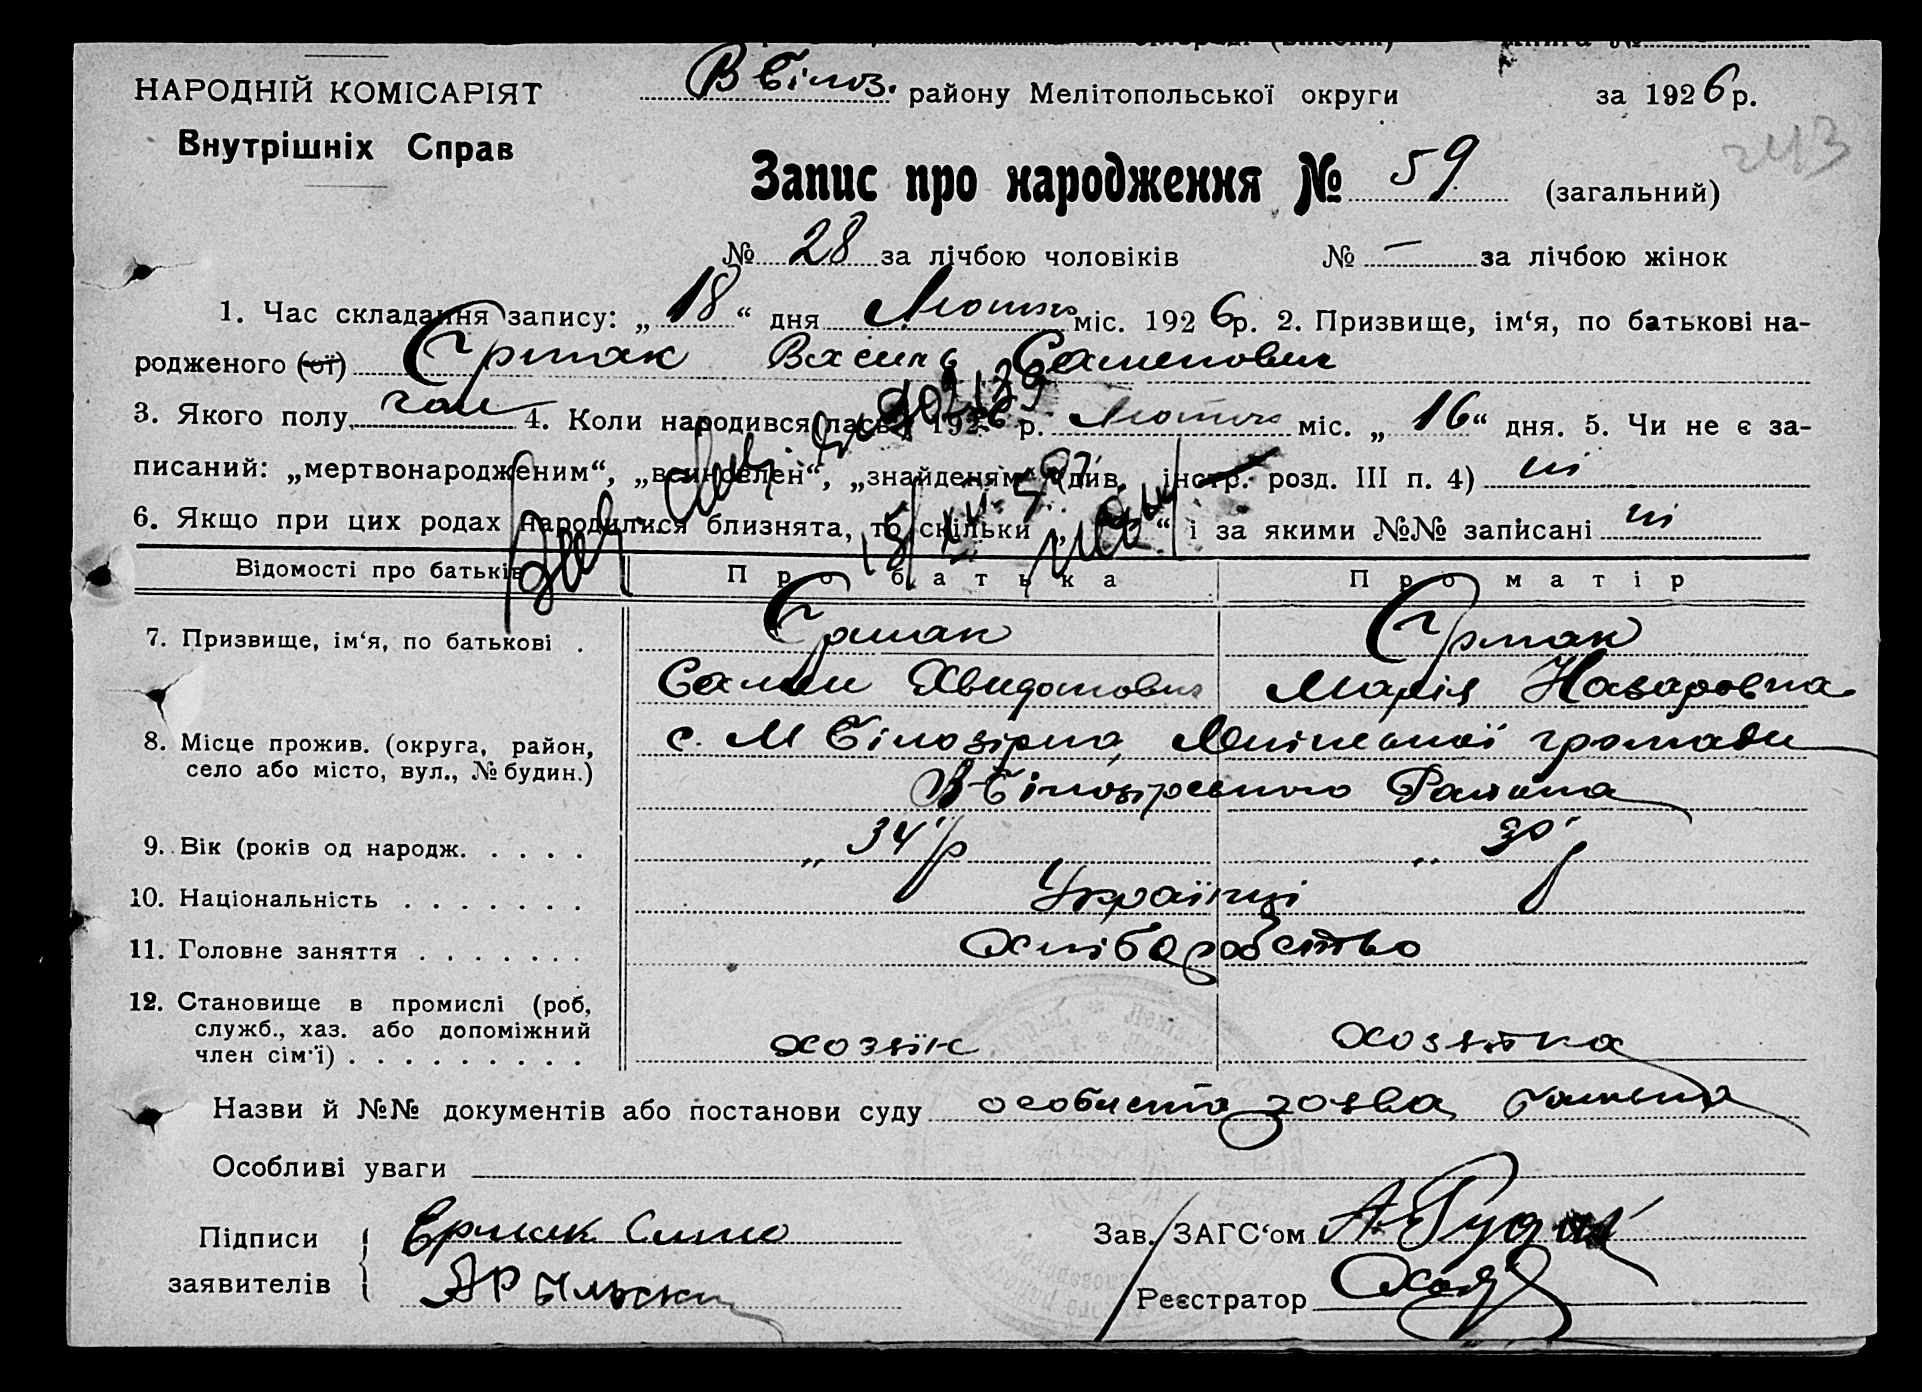 НАРОДНІЙ КОМІСАРІЯТ
Внутрішніх Справ
В Білоз. району Мелітопольської округи за 1926 р.
243
Запис про народження № 59 (загальний)
№ 28 за лічбою чоловіків № — за лічбою жінок
1. Час складання запису: „18“ дня Лютого міс. 1926 р. 2. Призвище, ім‘я, по батькові на-
родженого (ої) Єрмак Василь Семенович
3. Якого полу чол 4. Коли народився 1926 р. Лютого міс. „16“ дня. 5. Чи не є за-
писаний: „мертвонародженим“, „всиновлен“, „знайденям“ (див. інстр. розд. III п. 4) ні
6. Якщо при цих родах народилися близнята, то скільки „ “ і за якими №№ записані ні
Відомості про батьків Про батька Про матір
7. Призвище, ім‘я, по батькові . Єрмак Єрмак
Семен Хведотович Марія Назаровна
8. Місце прожив. (округа, район, с. М Білозірка, громади
село або місто, вул., № будин.) В-Білозірського Району
9. Вік (років од народж. . . . . „ 34 р „ 30 р
10. Національність . . . . . . . Українці
11. Головне заняття . . . . . . . Хліборобство
12. Становище в промислі (роб,
служб., хаз. або допоміжний
член сім‘ї) . . . . . . . . . хозяїн хозяйка
Назви й №№ документів або постанови суду особиста заява
Особливі уваги
Підписи Ермак Зав. ЗАГС‘ом
заявителів Реєстратор